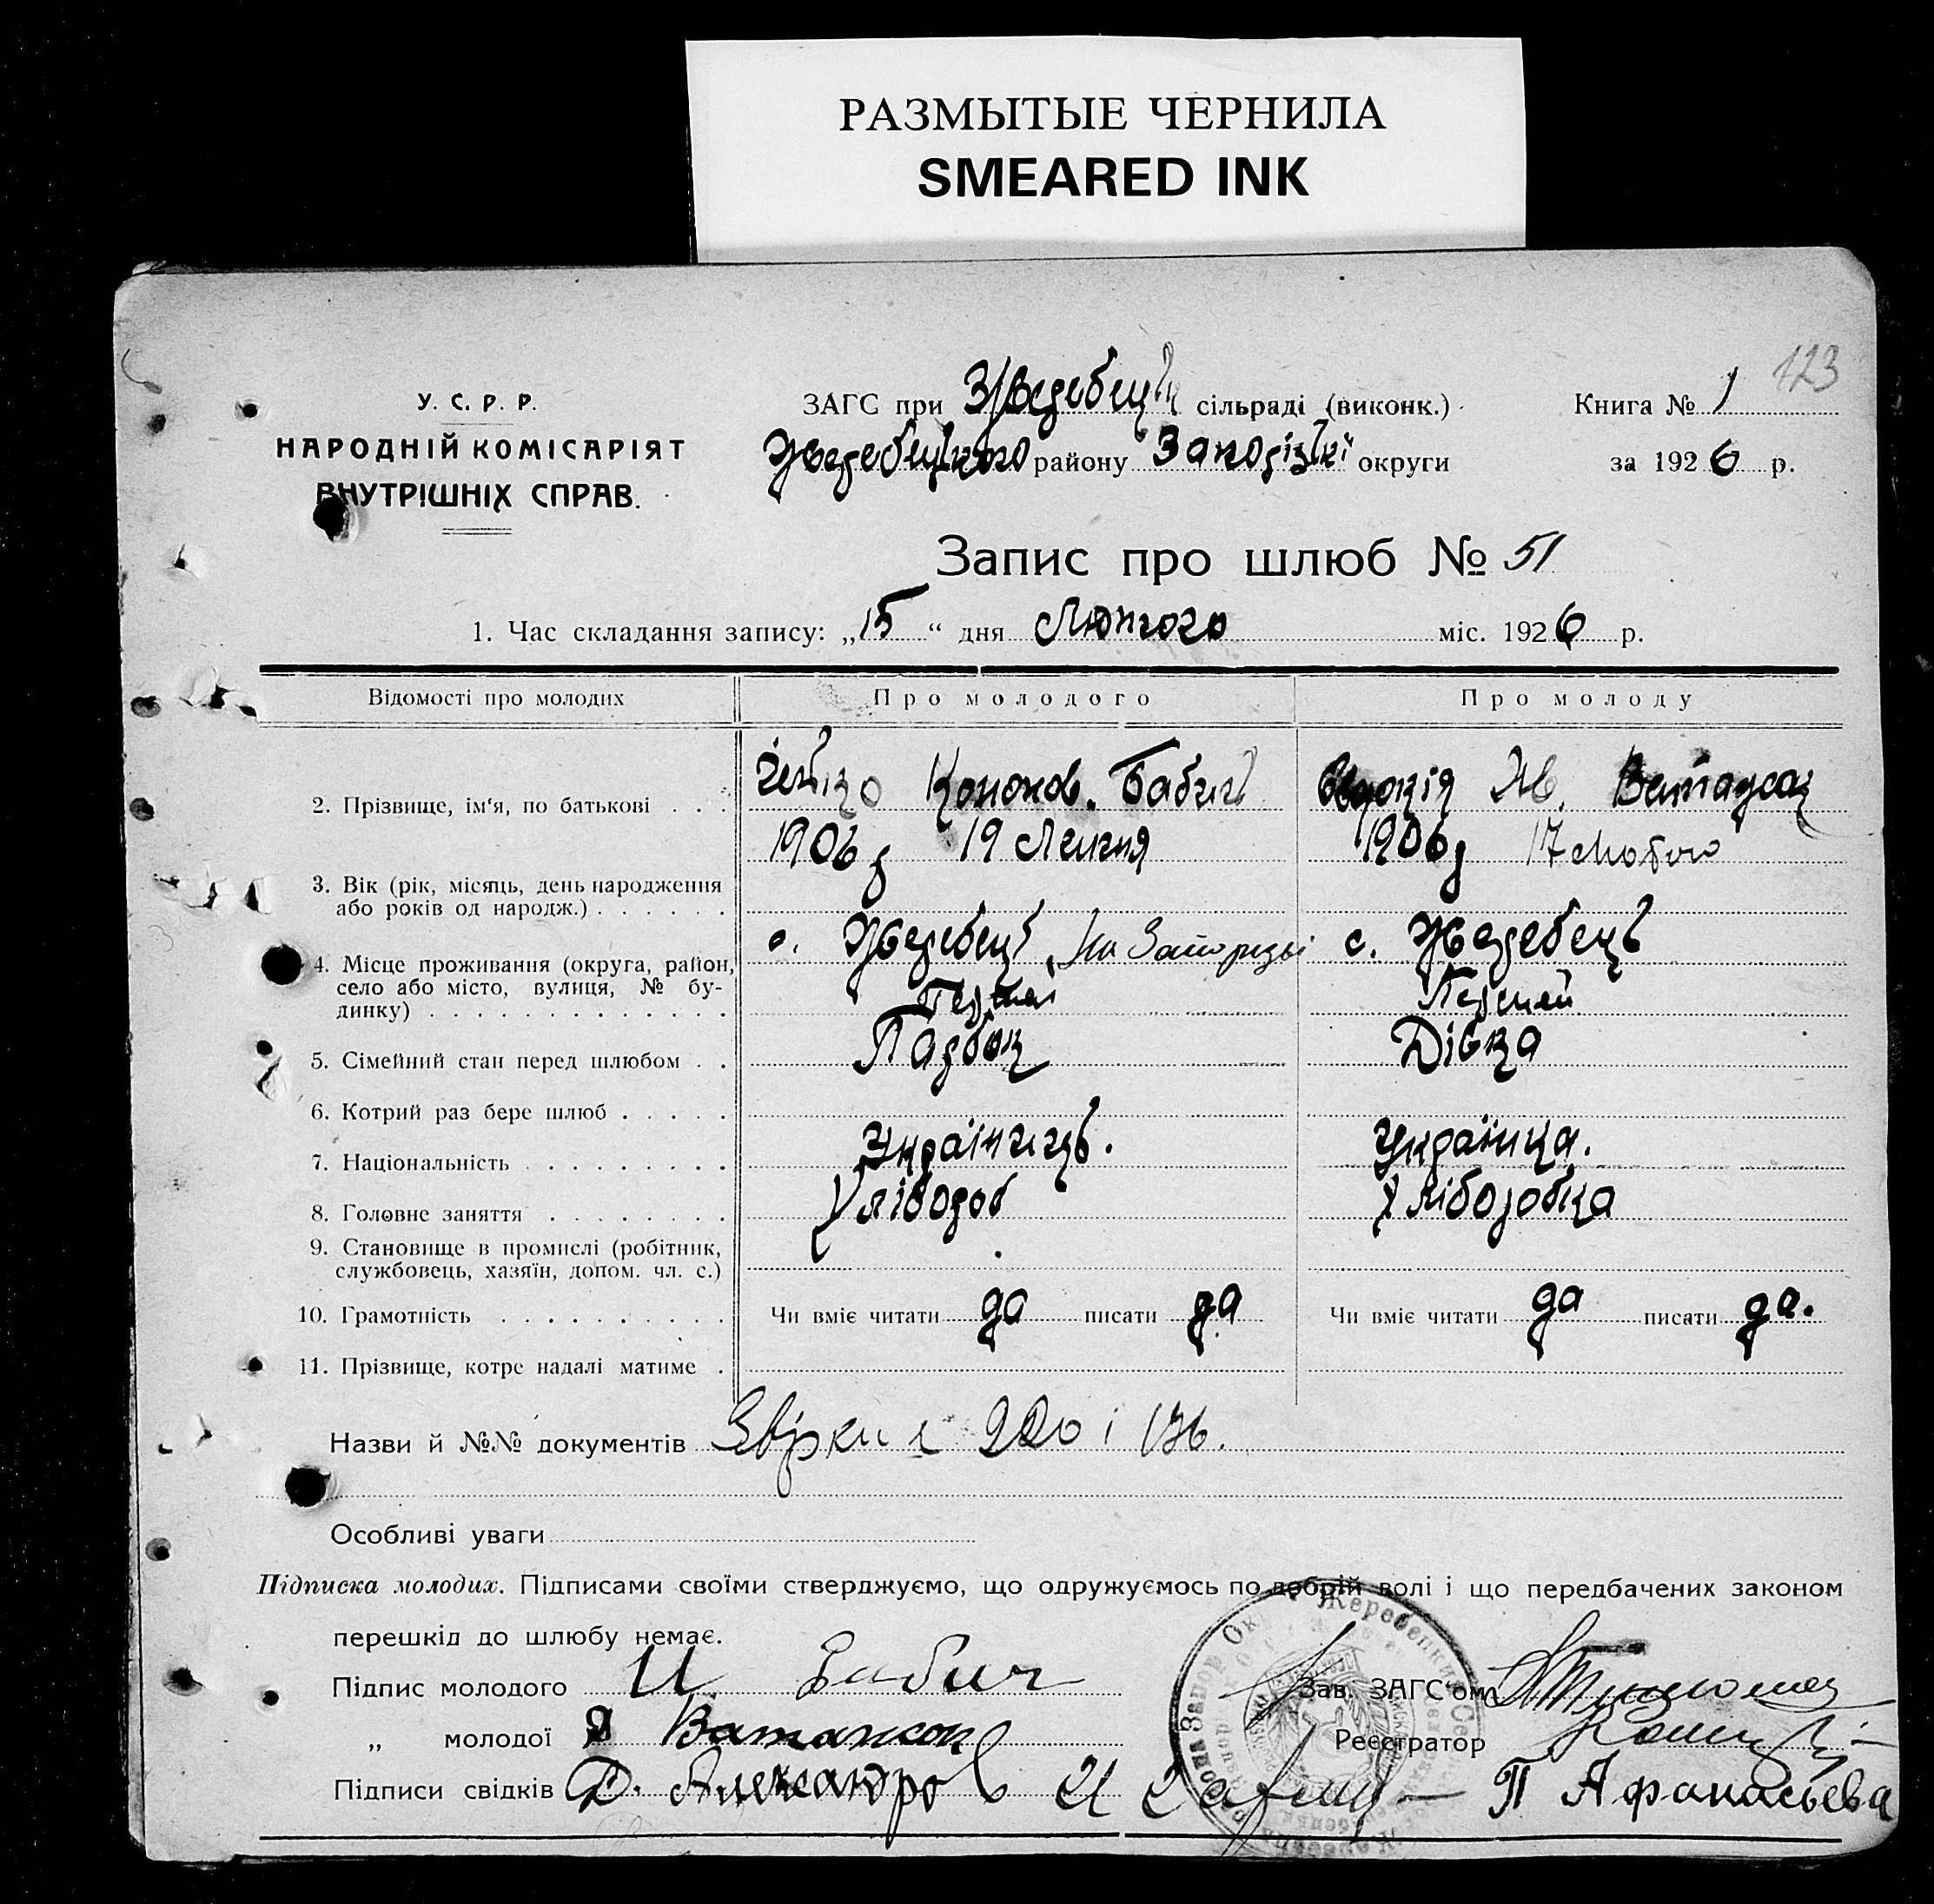 РАЗМЫТЫЕ ЧЕРНИЛА
SMEARED INK
123
У. С. Р. Р.
НАРОДНІЙ КОМІСАРІЯТ
ВНУТРІШНІХ СПРАВ.
ЗАГС при сільраді (виконк.)
Книга № 1
Жеребецького району Запорізької округи
за 1926 р.
Запис про шлюб № 51
1. Час складання запису: „15“ дня Лютого міс. 1926 р.
Відомості про молодих
Про молодого
Про молоду
2. Прізвище, ім'я, по батькові . . .
Кононов. Бабич
Явдокія Ів.
1906 р 19 Липня
1906 р 17
3. Вік (рік, місяць, день народження
або років од народж.) . . . . . .
4. Місце проживання (округа, район,
село або місто, вулиця, № бу-
динку) . . . . . . . . . . . . .
с. Жеребець
с. Жеребець
Первий
Первий
5. Сімейний стан перед шлюбом . .
Парубок
Дівка
6. Котрий раз бере шлюб . . . . .
7. Національність . . . . . . . .
Українець.
Українка.
8. Головне заняття . . . . . . .
Хлібороб
Хліборобка
9. Становище в промислі (робітник,
службовець, хазяїн, допом. чл. с.)
10. Грамотність . . . . . . . . .
Чи вміє читати да писати да
Чи вміє читати да писати да.
11. Прізвище, котре надалі матиме .
Назви й №№ документів 220 і 136.
Особливі уваги
Підписка молодих. Підписами своїми стверджуємо, що одружуємось по добрій волі і що передбачених законом
перешкід до шлюбу немає.
Підпис молодого И Бабич
Зав. ЗАГС'ом
„ молодої
Реєстратор
Підписи свідків Д. Александров
П Афанасьева